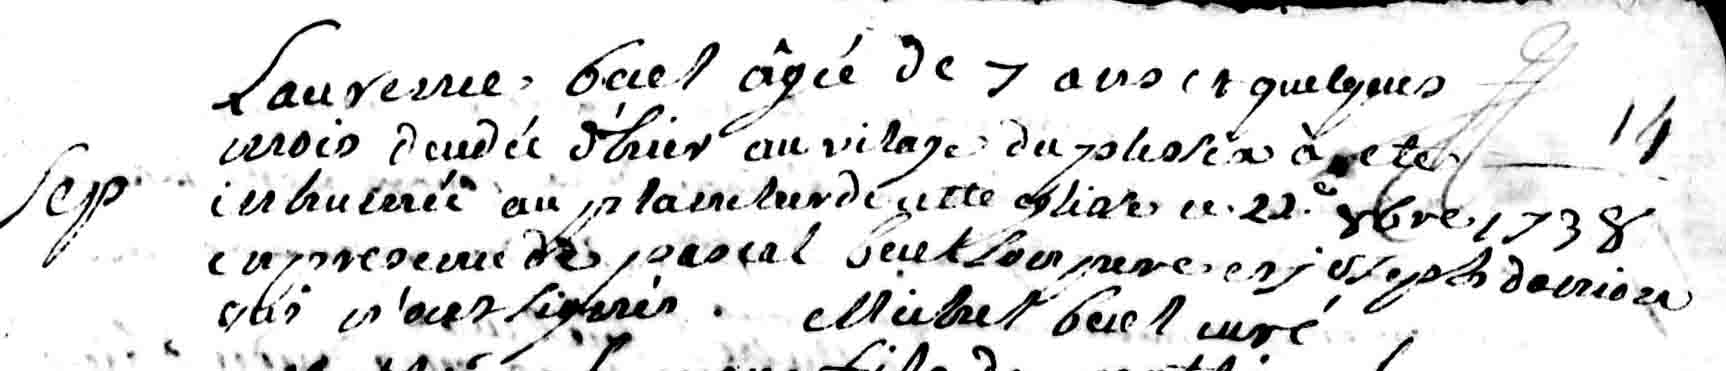 Laurence buel âgée de 7 ans et quelques
14
mois decedée d'hier au vilage du plesix à eté
Sep
inhumée au placitre de cette eglise ce 22.e 8bre 1738
en presence de pascal buel son pere et joseph
qui n'ont signés. Michel buel curé